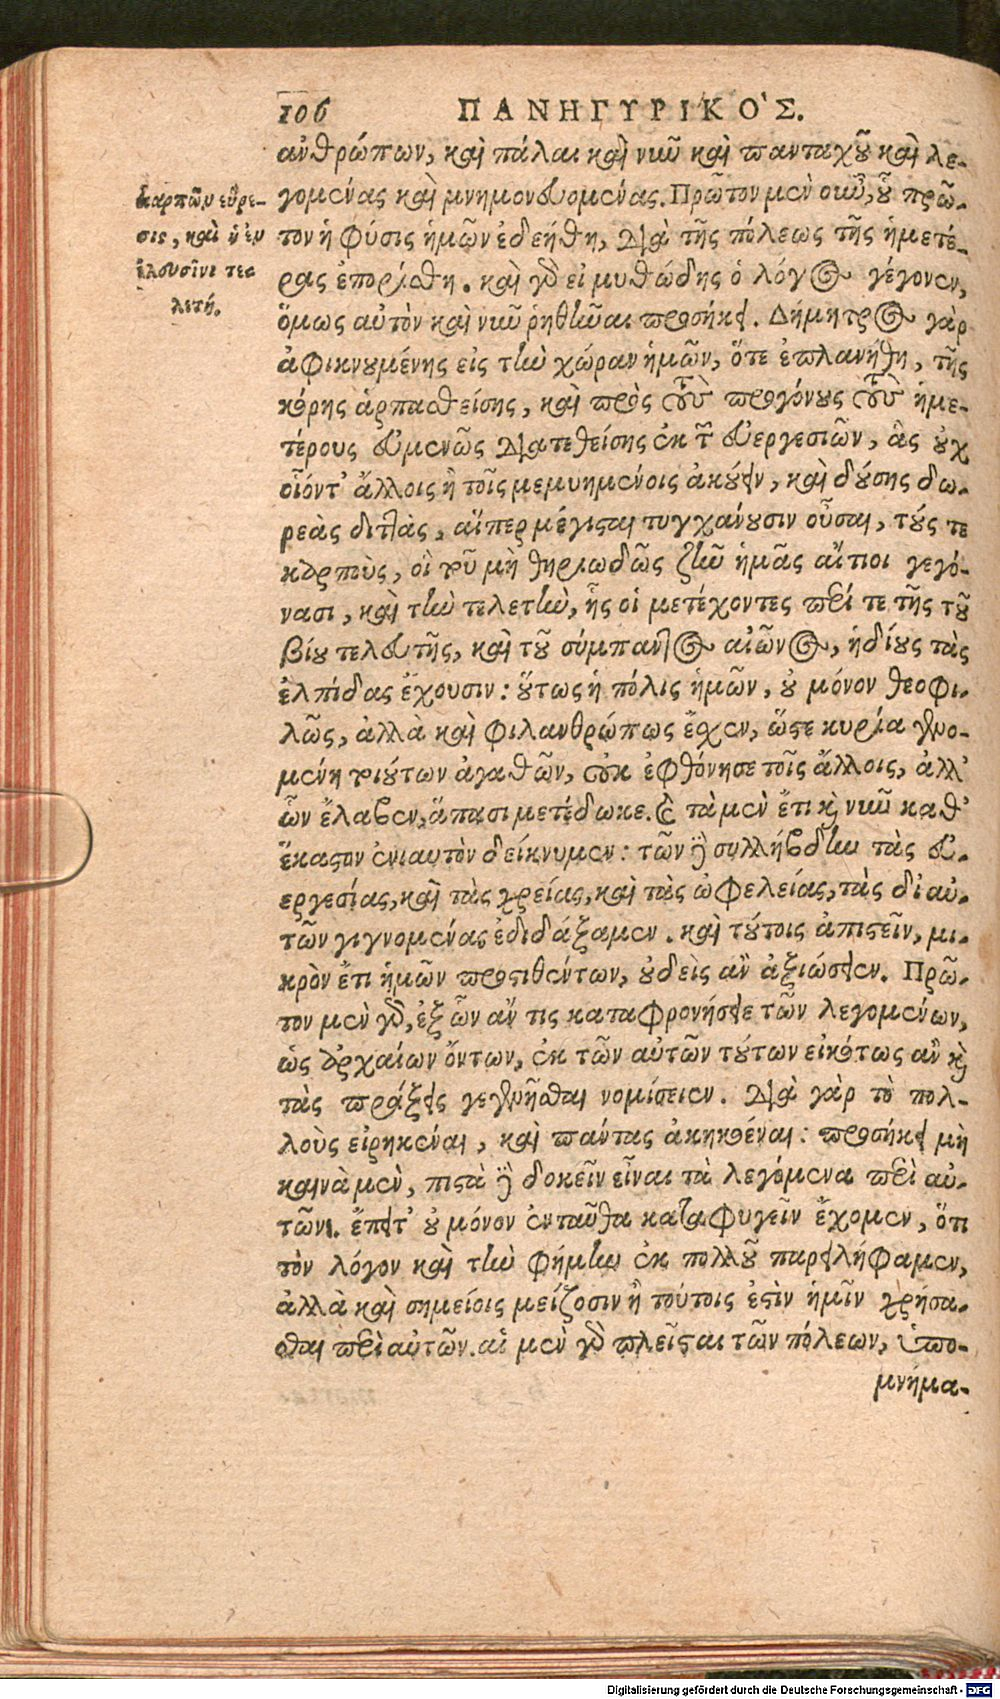 106 ΠΑΝΗΓΥΡΙΚΟ'Σ.
ἀνθρώπων, καὶ πάλαι καὶ νῦν καὶ πανταχοῦ καὶ λε-
γομένας καὶ μνημονευομένας. Πρῶτον μὲν οὖν, οὗ πρῶ-
τον ἡ φύσις ἡμῶν ἐδεήθη, διὰ τῆς πόλεως τῆς ἡμετέ-
ρας ἐπορίσθη. καὶ γὰρ εἰ μυθώδης ὁ λόγος γέγονεν,
ὅμως αὐτὸν καὶ νῦν ῥηθῆναι προσήκει. Δήμητρος γὰρ
ἀφικνουμένης εἰς τὴν χώραν ἡμῶν, ὅτε ἐπλανήθη, τῆς
κόρης ἁρπασθείσης, καὶ πρὸς τοὺς προγόνους τοὺς ἡμε-
τέρους εὐμενῶς διατεθείσης ἐκ τῶν εὐεργεσιῶν, ἃς οὐχ
οἷόντ' ἄλλοις ἢ τοῖς μεμυημένοις ἀκούειν, καὶ δούσης δω-
ρεὰς διττὰς, αἵπερ μέγισται τυγχάνουσιν οὖσαι, τούς τε
καρποὺς, οἳ τοῦ μὴ θηριωδῶς ζῆν ἡμᾶς αἴτιοι γεγό-
νασι, καὶ τὴν τελετὴν, ἧς οἱ μετέχοντες περί τε τῆς τοῦ
βίου τελευτῆς, καὶ τοῦ σύμπαντος αἰῶνος, ἡδίους τὰς
ἐλπίδας ἔχουσιν: οὕτως ἡ πόλις ἡμῶν, οὐ μόνον θεοφι-
λῶς, ἀλλὰ καὶ φιλανθρώπως ἔσχεν, ὥστε κυρία γενο-
μένη τοιούτων ἀγαθῶν, οὐκ ἐφθόνησε τοῖς ἄλλοις, ἀλλ'
ὧν ἔλαβεν, ἅπασι μετέδωκε. καὶ τὰ μὲν ἔτι καὶ νῦν καθ'
ἕκαστον ἐνιαυτὸν δείκνυμεν: τῶν δὲ συλλήβδην τὰς εὐ-
εργεσίας, καὶ τὰς χρείας, καὶ τὰς ὠφελείας, τὰς δι' αὐ-
τῶν γιγνομένας ἐδιδάξαμεν. καὶ τούτοις ἀπιστεῖν, μι-
κρὸν ἔτι ἡμῶν προστιθέντων, οὐδεὶς ἂν ἀξιώσειεν. Πρῶ-
τον μὲν γὰρ, ἐξ ὧν ἄν τις καταφρονήσειε τῶν λεγομένων,
ὡς ἀρχαίων ὄντων, ἐκ τῶν αὐτῶν τούτων εἰκότως ἂν καὶ
τὰς πράξεις γεγενῆσθαι νομίσειεν. διὰ γὰρ τὸ πολ-
λοὺς εἰρηκέναι, καὶ πάντας ἀκηκοέναι: προσήκει μὴ
καινὰ μὲν, πιστὰ δὲ δοκεῖν εἶναι τὰ λεγόμενα περὶ αὐ-
τῶν. ἔπειτ' οὐ μόνον ἐνταῦθα καταφυγεῖν ἔχομεν, ὅτι
τὸν λόγον καὶ τὴν φήμην ἐκ πολλοῦ παρειλήφαμεν,
ἀλλὰ καὶ σημείοις μείζοσιν ἢ τούτοις ἐστὶν ἡμῖν χρήσα-
σθαι περὶ αὐτῶν. αἱ μὲν γὰρ πλεῖσται τῶν πόλεων, ὑπο-
μνήμα-
καρπῶν εὕρε-
σις, καὶ ἡ ἐν
ἐλευσῖνι τε
λετή.
Digitalisierung gefördert durch die Deutsche Forschungsgemeinschaft - DFG